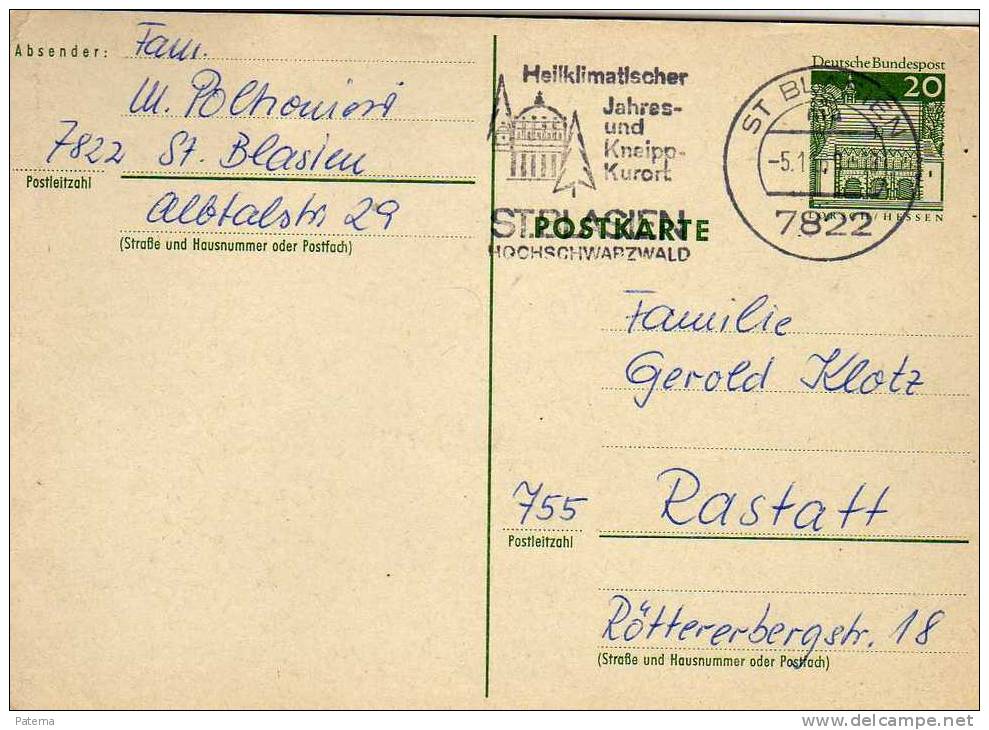 Absender:
Fam.
7822 St. Blasien
Postleitzahl
Albtalstr. 29
(Straße und Hausnummer oder Postfach)
Heilklimatischer
Jahres-
und
Kneipp-
Kurort
ST.BLASIEN
HOCHSCHWARZWALD
POSTKARTE
Deutsche Bundespost
20
LORSCH/HESSEN
ST BLASIEN
-5.1
7822
Familie
Gerold Klotz
755 Rastatt
Postleitzahl
Röttererbergstr. 18
(Straße und Hausnummer oder Postfach)
Paterna
http://www.delcampe.net